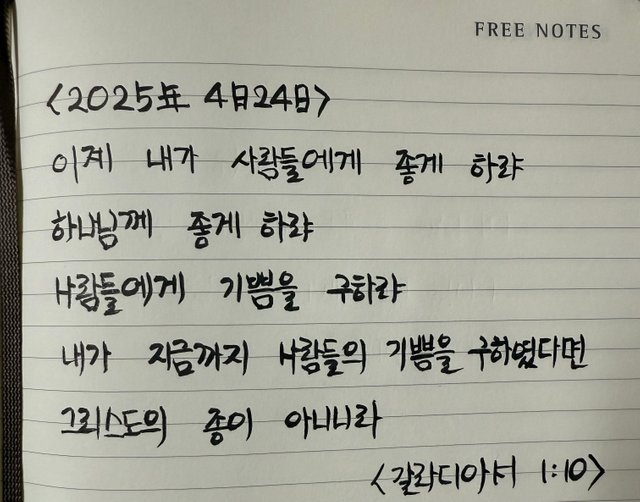 FREE NOTES
<2025年 4日24日>
이계 내가 사람들에게 좋게 하랴
하나님께 좋게 하랴
사람들에게 기쁨을 구하랴
내가 지금까지 사람들의 기쁨을 구하였다면
그리스도의 종이 아니니라
<갈라디아서 1:10>